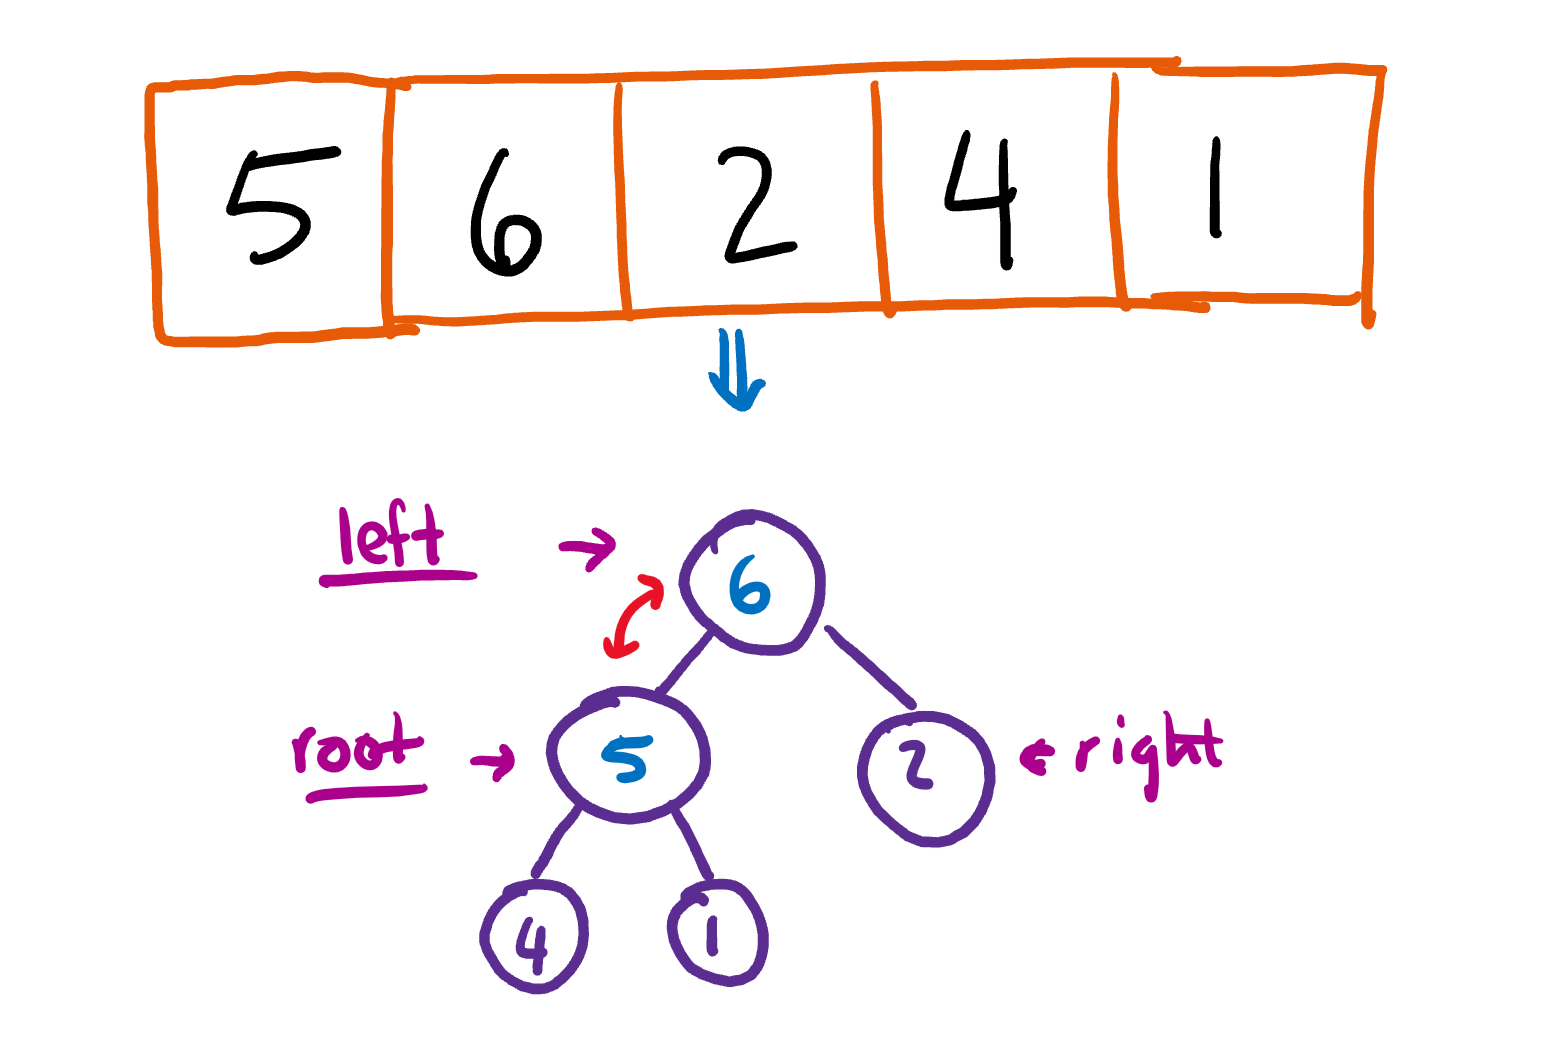 5 6 2 4 1
left
6
root
5
2
right
4
1